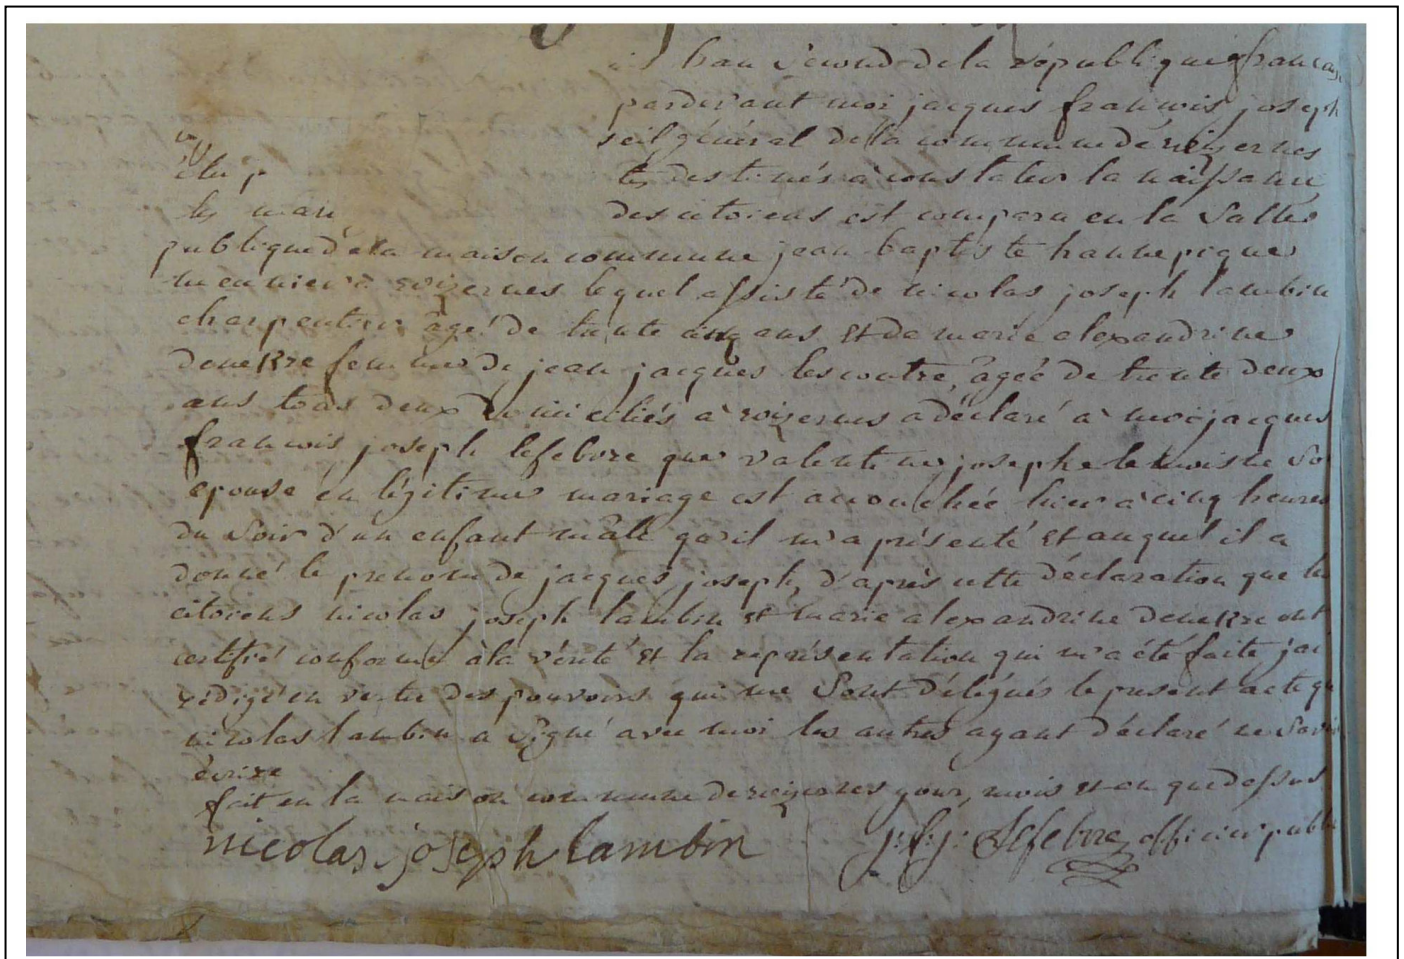 lan second de la république francaise
pardevant moi jacques francois joseph
seil général de la commune de wizernes
élu p tés destinés à constater la naissance
les mari des citoiens est comparu en la salle
publique de la maison commune jean baptiste hannepique
meunier à wizernes lequel assisté de nicolas joseph lambin
charpentier âgé de trente cinq ans et de marie alexandrine
femme de jean jacques lescoutre, agée de trente deux
ans tous deux domiciliés à wizernes a déclaré à moi jacques
francois joseph lefebvre que valentine josephe lemoisne so
epouse en légitime mariage est accouchée hier à cinq heures
du soir d'un enfant mâle qu'il m'a présenté et auquel il a
donné le prenom de jacques joseph, d'après cette déclaration que les
citoiens nicolas joseph lambin et marie alexandrine ont
certifié conforme à la vérité et la représentation qui m'a été faite j'ai
redigé en vertu des pouvoirs qui me sont délégués le present acte que
nicolas lambin a signé avec moi les autres ayant déclaré ne savoir
écrire
fait en la maison commune de wizernes jour, mois et an que dessus
nicolas joseph lambin j: f: j: Lefebvre officier public